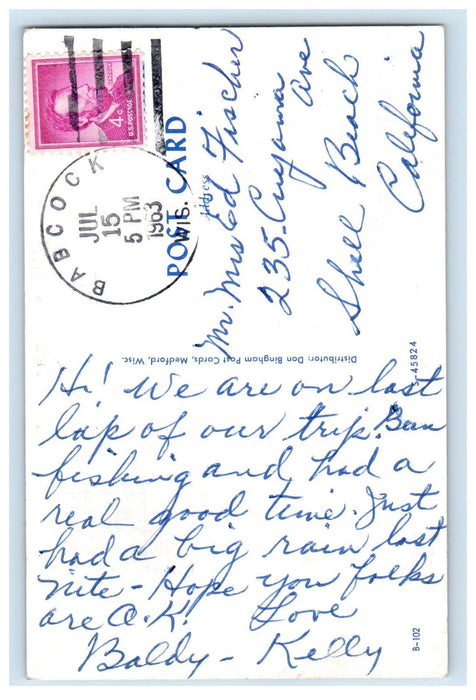 4¢
U.S. POSTAGE
BABCOCK
JUL
15
5 PM
1963
WIS.
POST CARD
Address
Mr. Mrs Ed Fischer
235-Cuyama
Ave
Shell Beach
California
Distributor: Don Bingham Post Cards, Medford, Wisc.
S-45824
Hi! We are on last
lap of our trip. Been
fishing and had a
real good time. Just
had a big rain last
nite - Hope you folks
are O.K! Love
Baldy - Kelly
B-102